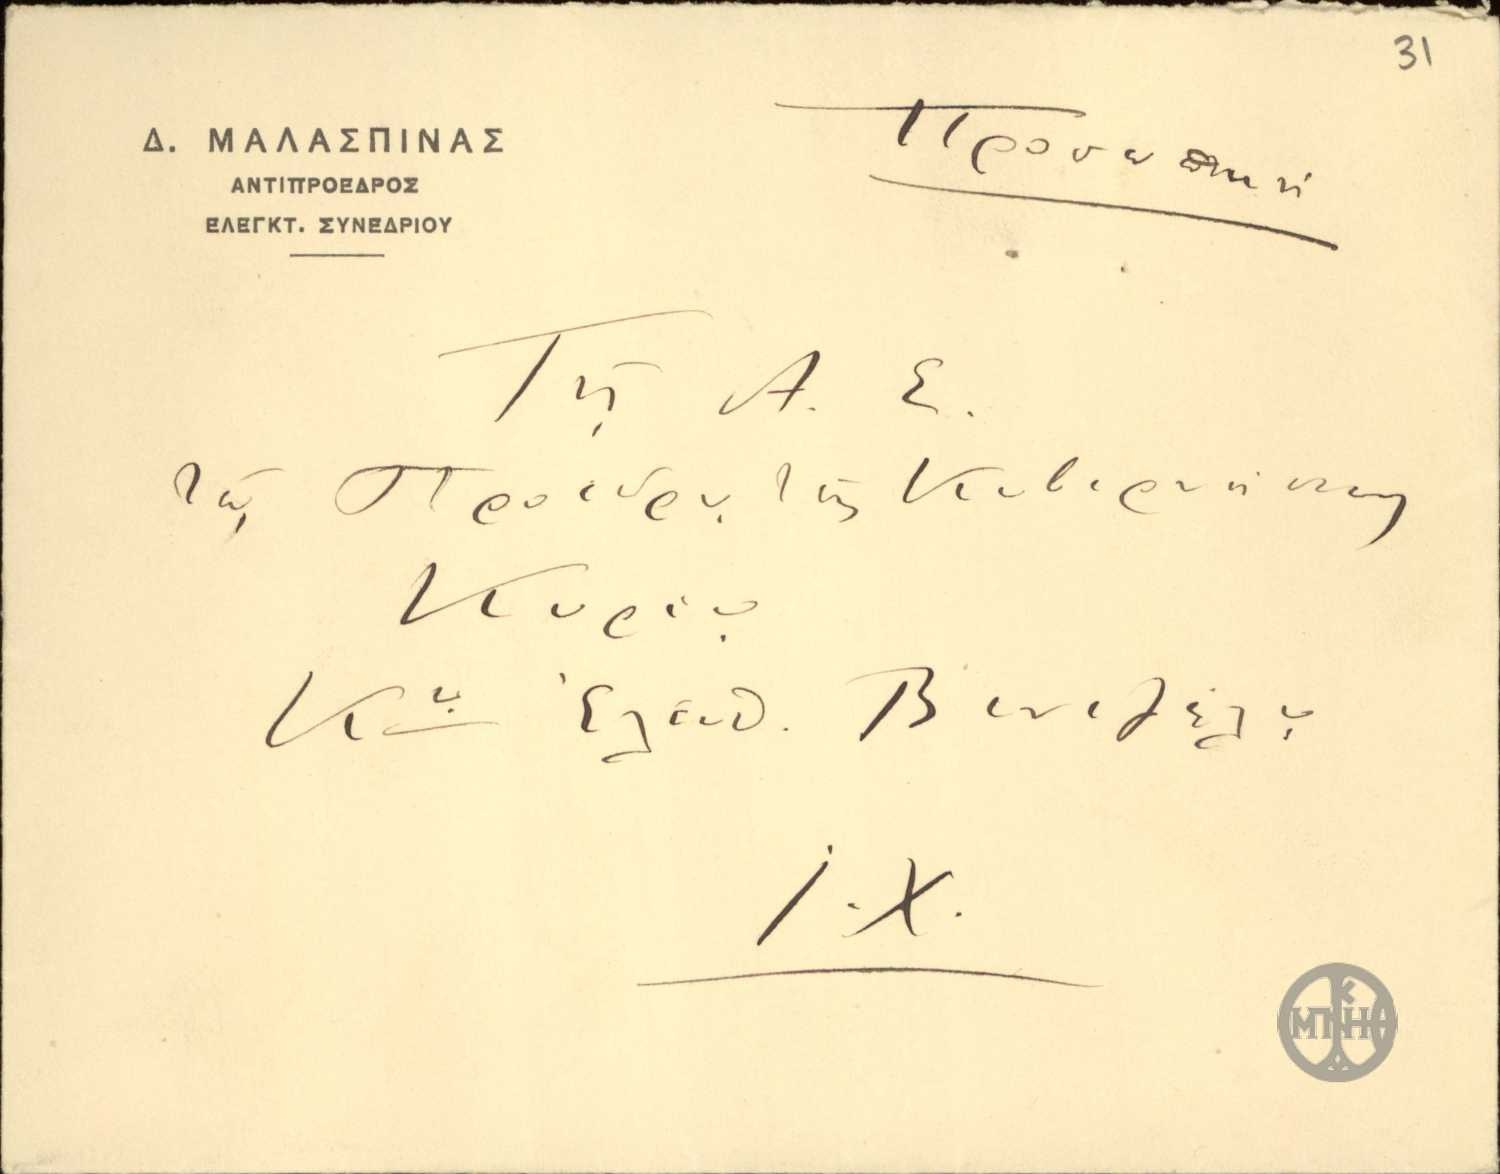 31
Δ. ΜΑΛΑΣΠΙΝΑΣ
ΑΝΤΙΠΡΟΕΔΡΟΣ
ΕΛΕΓΚΤ. ΣΥΝΕΔΡΙΟΥ
Προσωπική
Τῇ Α. Ε.
τῷ Προέδρῳ τῆς Κυβερνήσεως
Κυρίῳ
Κῳ Ἐλευθ. Βενιζέλῳ
Ι. Χ.